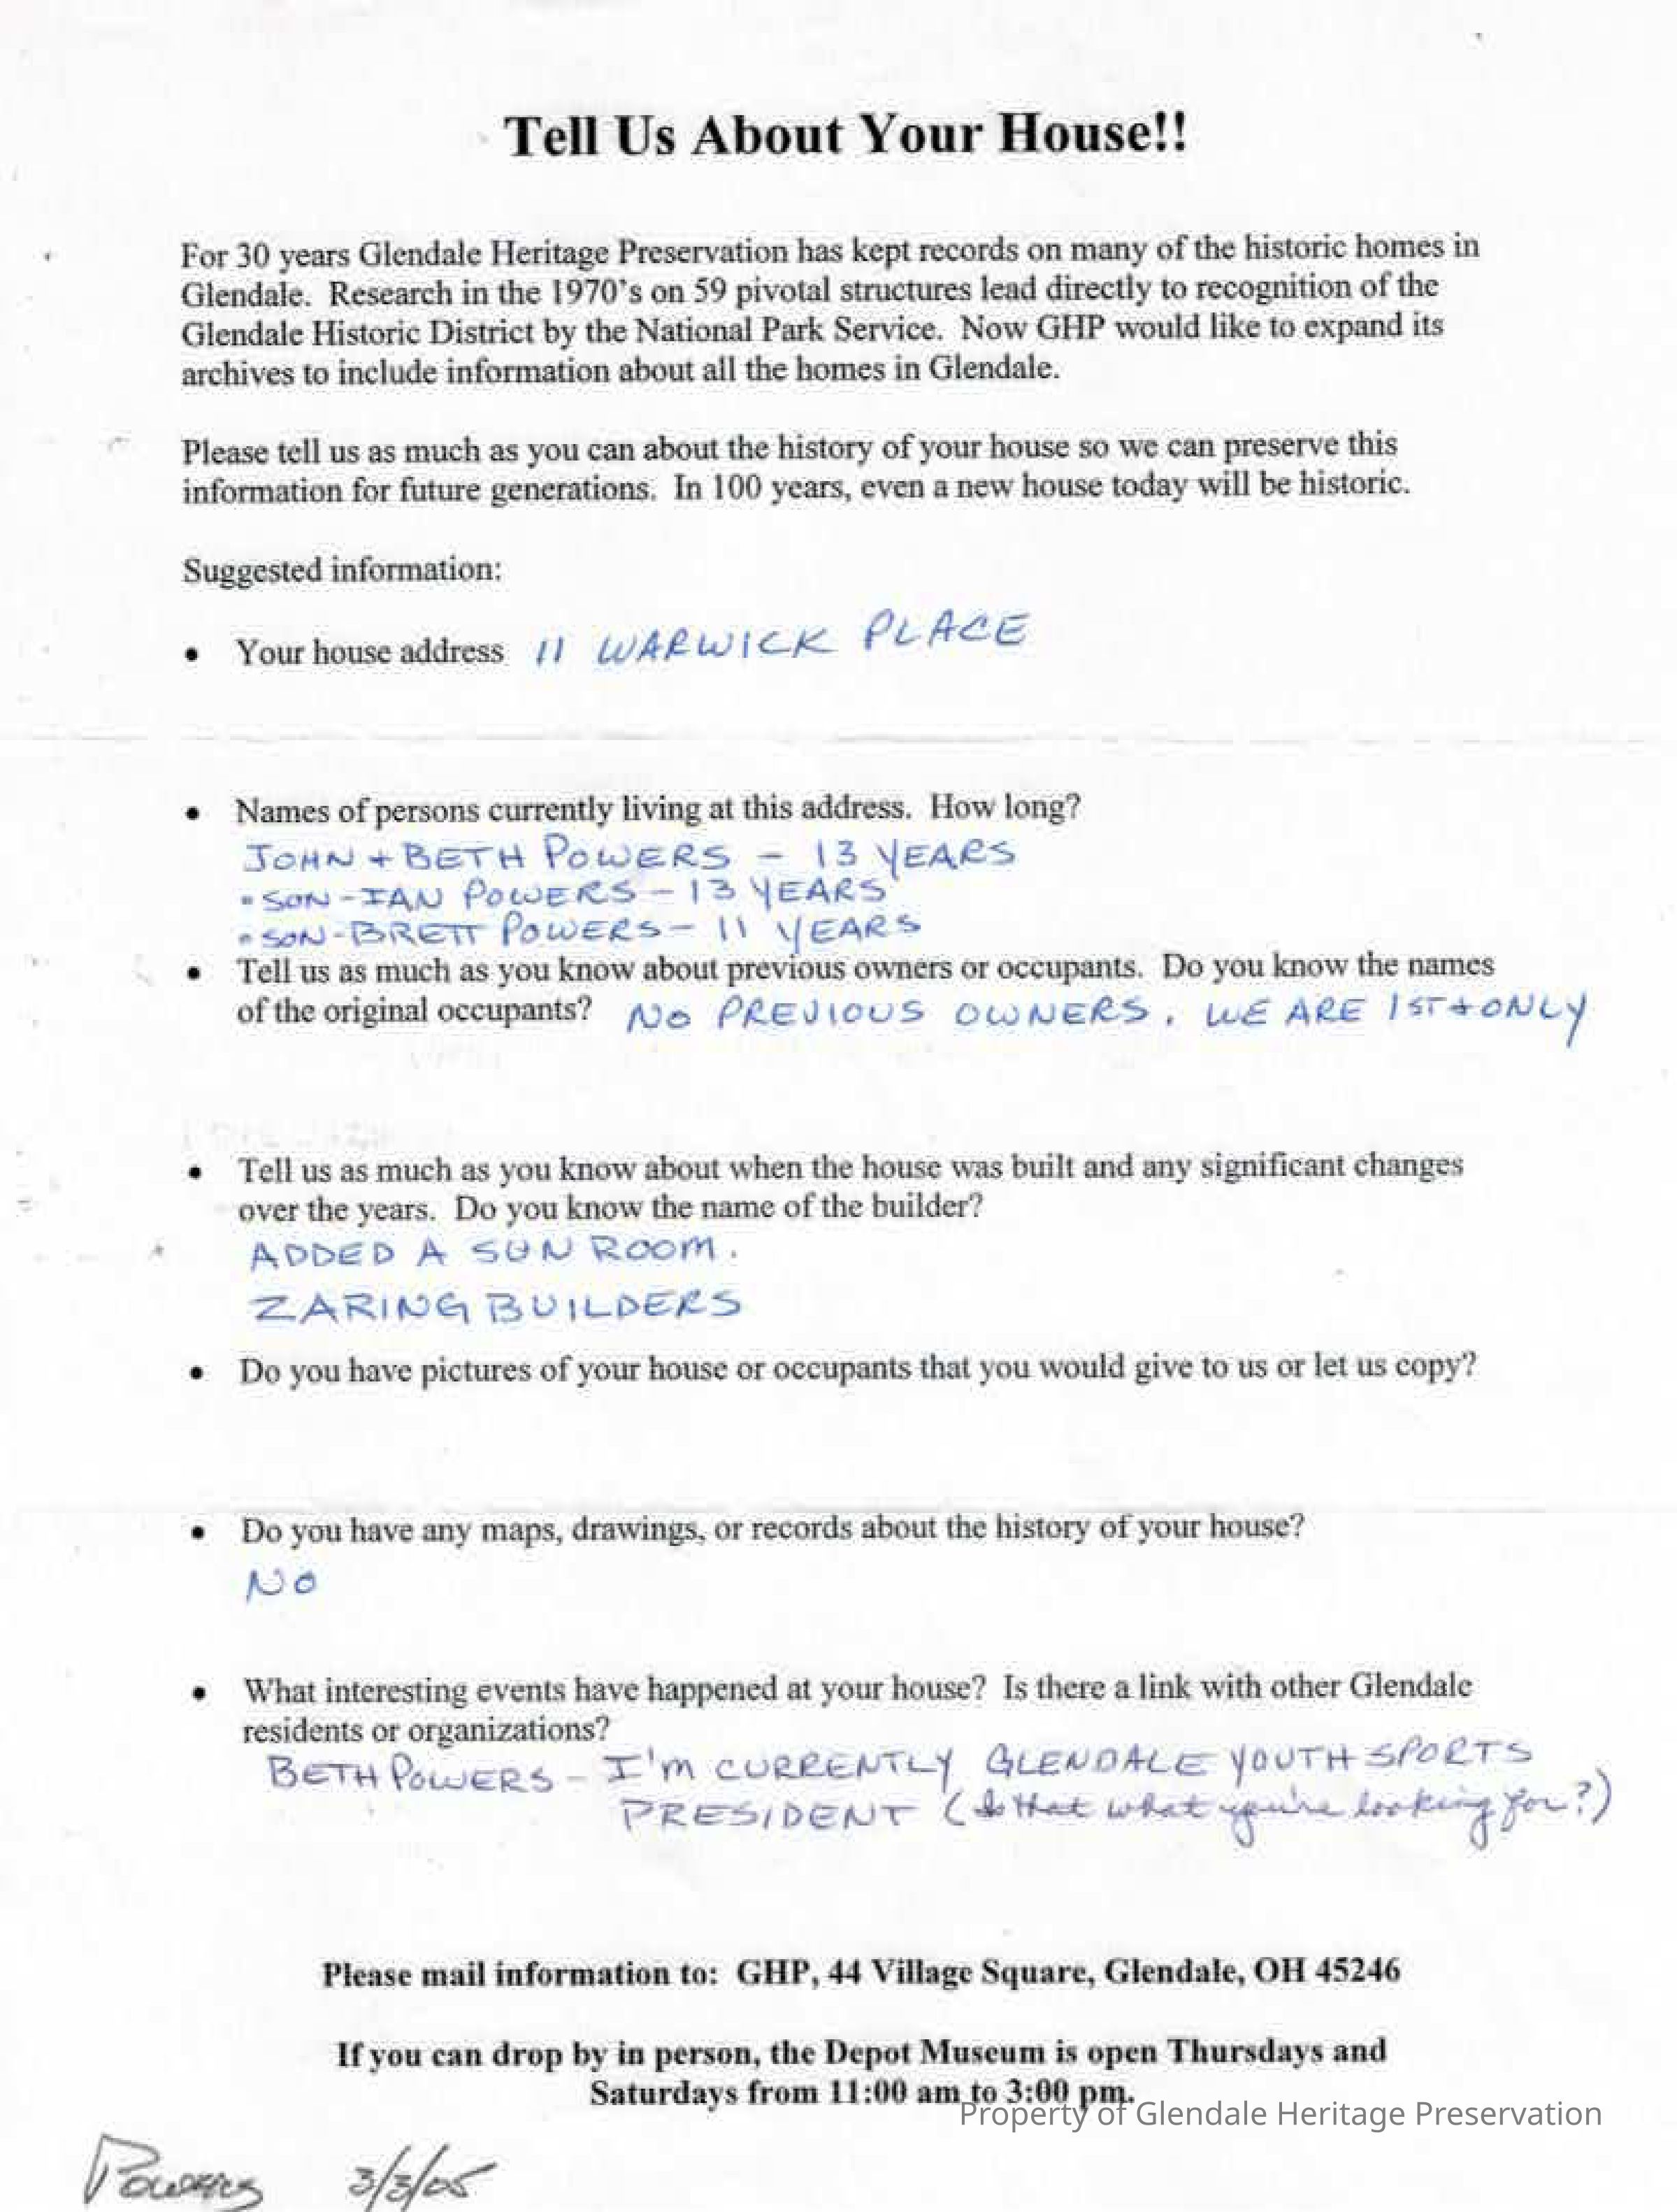 Tell Us About Your House!!
For 30 years Glendale Heritage Preservation has kept records on many of the historic homes in
Glendale. Research in the 1970's on 59 pivotal structures lead directly to recognition of the
Glendale Historic District by the National Park Service. Now GHP would like to expand its
archives to include information about all the homes in Glendale.
Please tell us as much as you can about the history of your house so we can preserve this
information for future generations. In 100 years, even a new house today will be historic.
Suggested information:
• Your house address 11 WARWICK PLACE
• Names of persons currently living at this address. How long?
JOHN + BETH POWERS - 13 YEARS
• SON - IAN POWERS - 13 YEARS
• SON - BRETT POWERS - 11 YEARS
• Tell us as much as you know about previous owners or occupants. Do you know the names
of the original occupants? NO PREVIOUS OWNERS. WE ARE 1ST + ONLY
• Tell us as much as you know about when the house was built and any significant changes
over the years. Do you know the name of the builder?
ADDED A SUN ROOM.
ZARING BUILDERS
• Do you have pictures of your house or occupants that you would give to us or let us copy?
• Do you have any maps, drawings, or records about the history of your house?
NO
• What interesting events have happened at your house? Is there a link with other Glendale
residents or organizations?
BETH POWERS - I'M CURRENTLY GLENDALE YOUTH SPORTS
PRESIDENT (Is that what you're looking for?)
Please mail information to: GHP, 44 Village Square, Glendale, OH 45246
If you can drop by in person, the Depot Museum is open Thursdays and
Saturdays from 11:00 am to 3:00 pm.
Property of Glendale Heritage Preservation
Powers 3/3/05